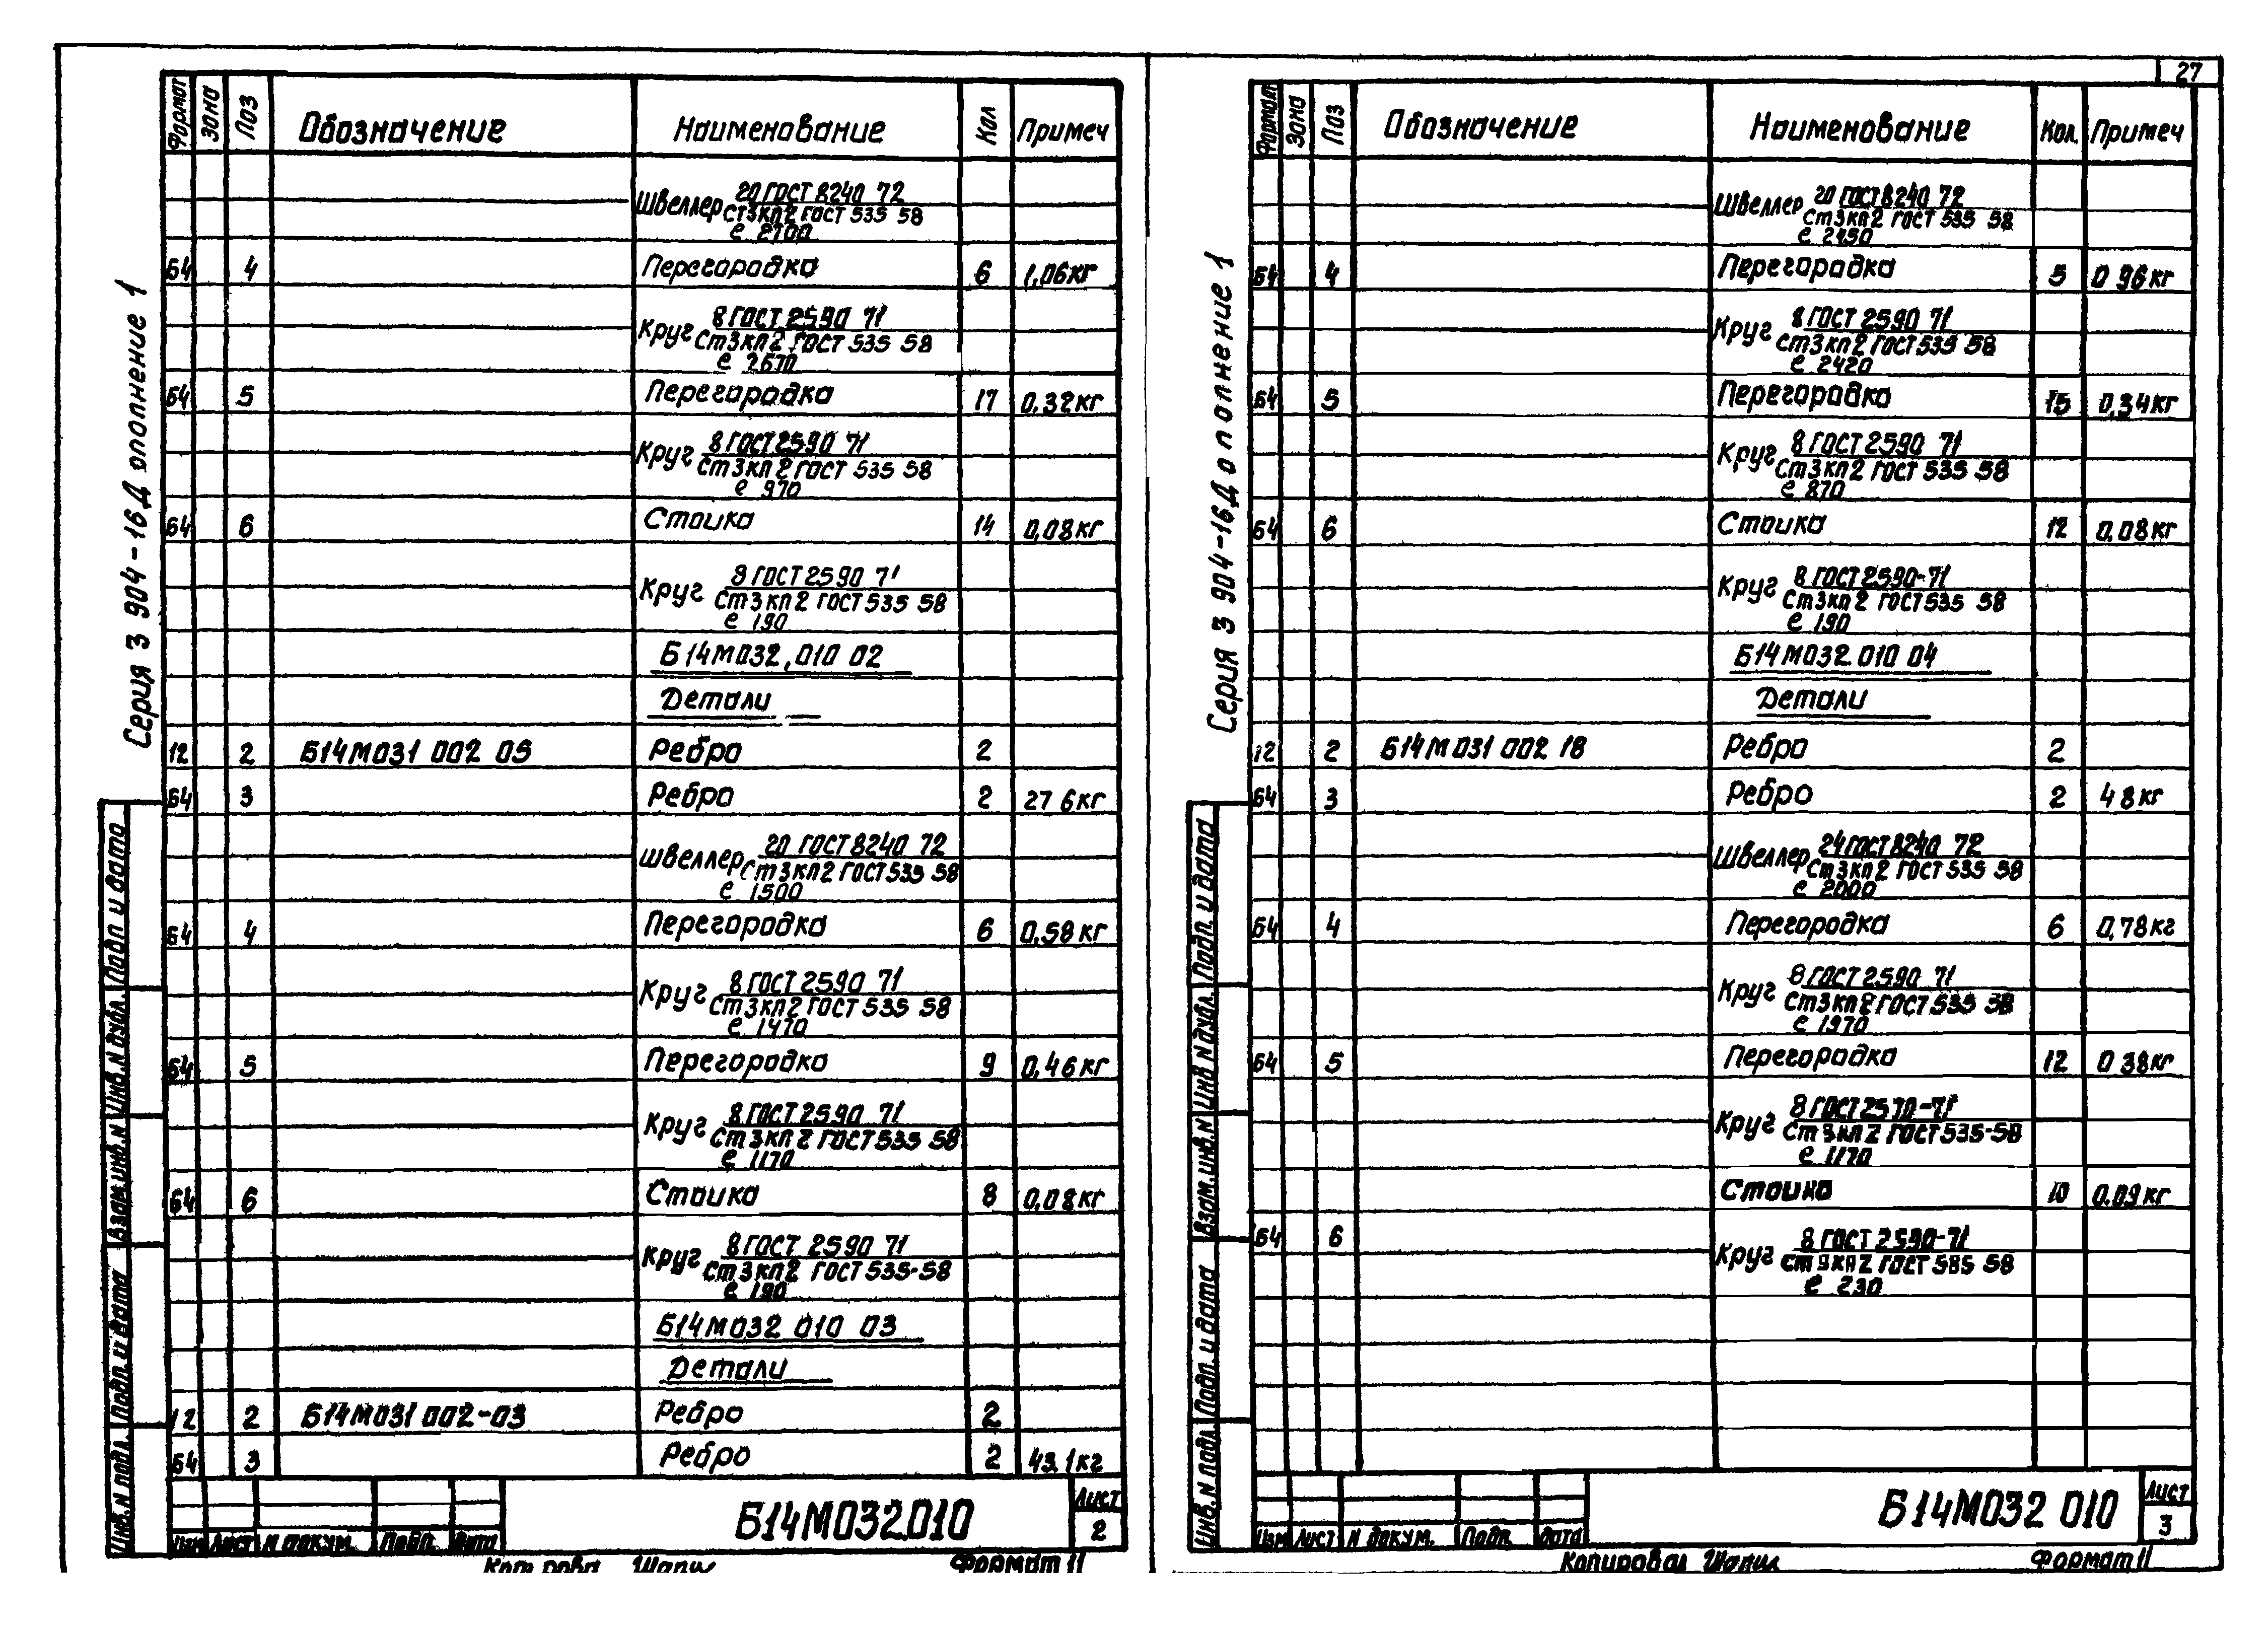 27
Серия 3 904-16 Дополнение 1
Формат Зона Поз Обозначение Наименование Кол Примеч
Швеллер 20 ГОСТ 8240 72
Ст3кп2 ГОСТ 535 58
е 2700
Б4 4 Перегородка 6 1,06кг
Круг 8 ГОСТ 2590 71
Ст3кп2 ГОСТ 535 58
е 2670
Б4 5 Перегородка 17 0,32кг
Круг 8 ГОСТ 2590 71
Ст3кп2 ГОСТ 535 58
е 970
Б4 6 Стоика 14 0,08кг
Круг 8 ГОСТ 2590 71
Ст3кп2 ГОСТ 535 58
е 190
Б14М032,010 02
Детали
12 2 Б14М031 002 05 Ребро 2
Б4 3 Ребро 2 27 6кг
Швеллер 20 ГОСТ 8240 72
Ст3кп2 ГОСТ 535 58
е 1500
Б4 4 Перегородка 6 0,58кг
Круг 8 ГОСТ 2590 71
Ст3кп2 ГОСТ 535 58
е 1470
Б4 5 Перегородка 9 0,46кг
Круг 8 ГОСТ 2590 71
Ст3кп2 ГОСТ 535 58
е 1170
Б4 6 Стоика 8 0,08кг
Круг 8 ГОСТ 2590 71
Ст3кп2 ГОСТ 535-58
е 190
Б14М032 010 03
Детали
12 2 Б14М031 002-03 Ребро 2
Б4 3 Ребро 2 43.1кг
Подп. и дата
Инв.N дубл.
Взам.инв.N
Подп. и дата
Инв.N подл.
Изм Лист N докум. Подп. Дата
Б14М032.010
Лист
2
Шапш
Формат 11
Серия 3 904-16 Дополнение 1
Формат Зона Поз Обозначение Наименование Кол. Примеч
Швеллер 20 ГОСТ 8240 72
Ст3кп2 ГОСТ 535 58
е 2450
Б4 4 Перегородка 5 0 96кг
Круг 8 ГОСТ 2590 71
Ст3кп2 ГОСТ 535 58
е 2420
Б4 5 Перегородка 15 0,34кг
Круг 8 ГОСТ 2590 71
Ст3кп2 ГОСТ 535 58
е 870
Б4 6 Стоика 12 0,08кг
Круг 8 ГОСТ 2590-71
Ст3кп2 ГОСТ 535 58
е 190
Б14М032 010 04
Детали
12 2 Б14М031 002 18 Ребро 2
Б4 3 Ребро 2 48кг
Швеллер 24 ГОСТ 8240 72
Ст3кп2 ГОСТ 535 58
е 2000
Б4 4 Перегородка 6 0,78кг
Круг 8 ГОСТ 2590 71
Ст3кп2 ГОСТ 535 58
е 1970
Б4 5 Перегородка 12 0 38кг
Круг 8 ГОСТ 2590-71
Ст3кп2 ГОСТ 535-58
е 1170
Стоика 10 0.09кг
Б4 6
Круг 8 ГОСТ 2590-71
Ст3кп2 ГОСТ 535 58
е 230
Подп. и дата
Инв N дубл.
Взам.инв.N
Подп. и дата
Инв.N подл.
Изм Лист N докум. Подп. Дата
Б14М032 010
Лист
3
Копировал Шапш
Формат 11